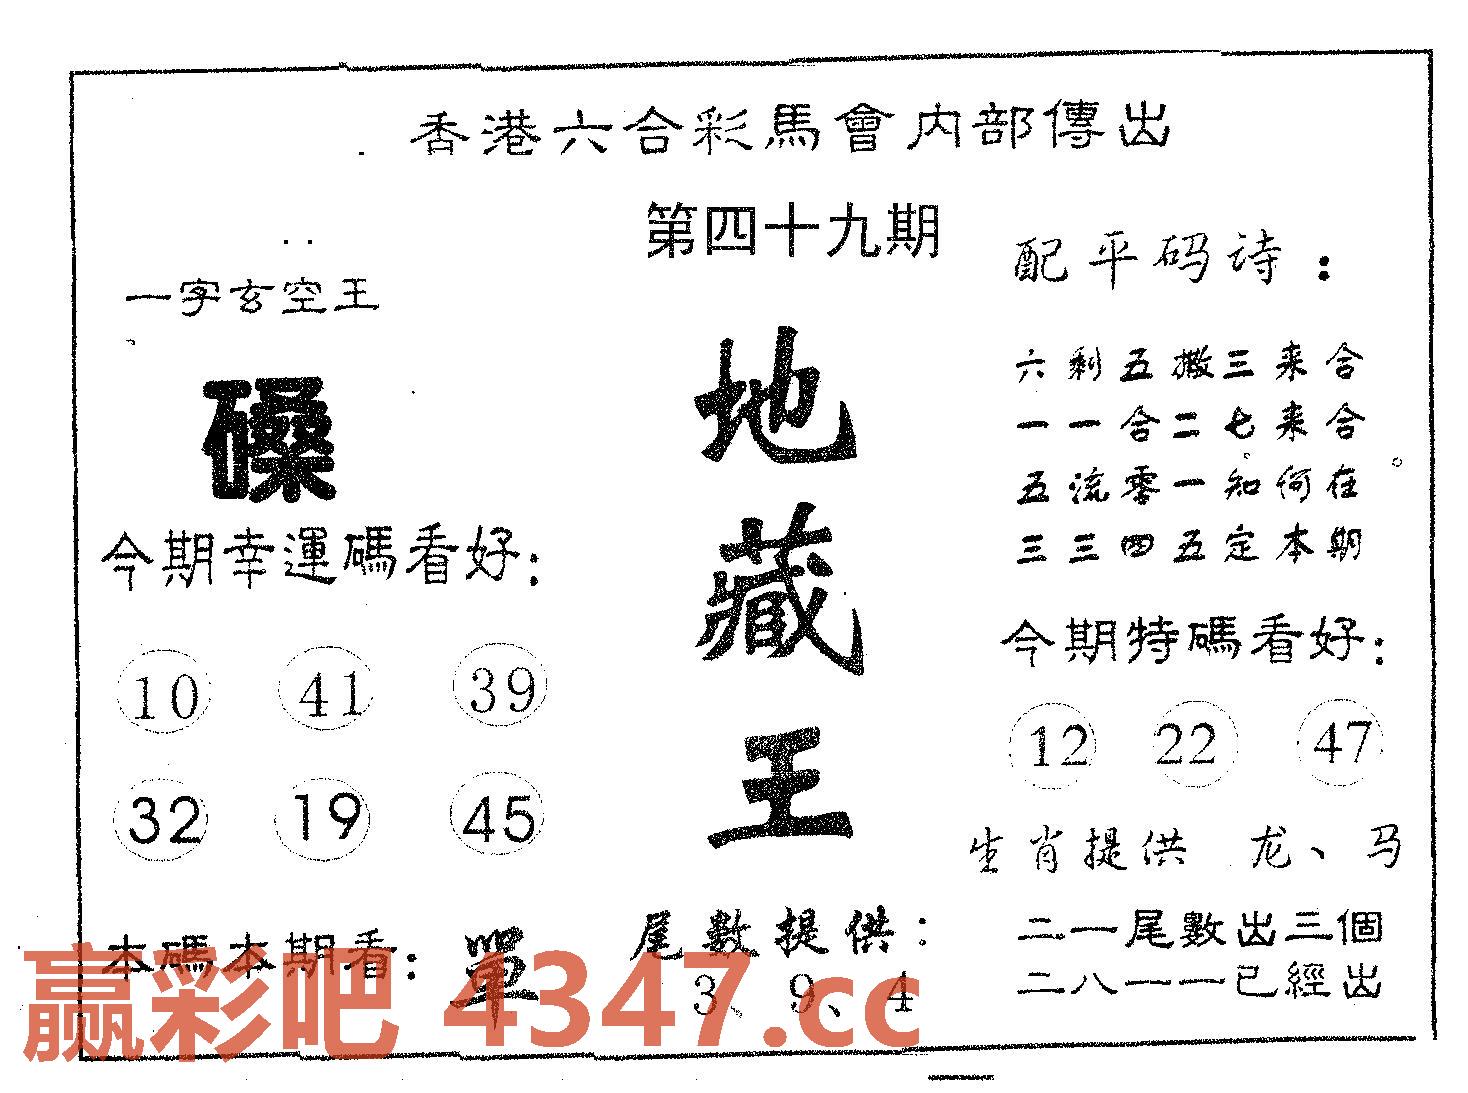 香港六合彩馬會内部傳出
第四十九期
一字玄空王
磉
今期幸運碼看好:
10 41 39
32 19 45
本碼本期看: 單
地藏王
尾數提供:
3、9、4
配平码诗:
六剩五撒三来合
一一合二七来合
五流零一知何在
三三四五定本期
今期特碼看好:
12 22 47
生肖提供 龙、马
二一尾數出三個
二八一一已經出
赢彩吧 4347.cc